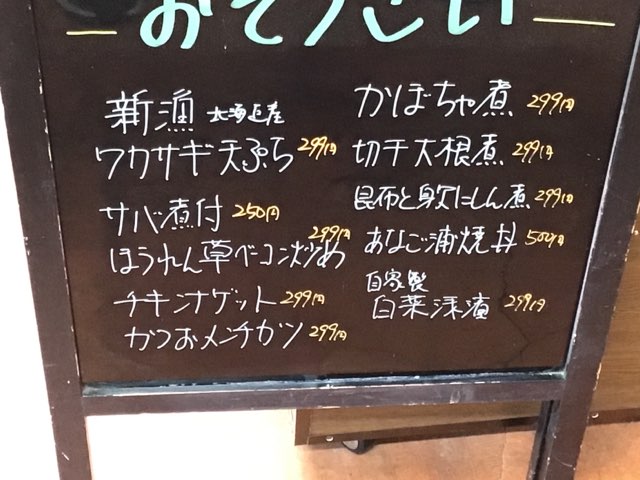 おそうざい
新漁 北海道産
ワカサギ天ぷら 299円
サバ煮付 250円
ほうれん草ベーコン炒め 299円
チキンナゲット 299円
かつおメンチカツ 299円
かぼちゃ煮 299円
切干大根煮 299円
昆布と身欠にしん煮 299円
あなご蒲焼丼 500円
自家製
白菜浅漬 299円